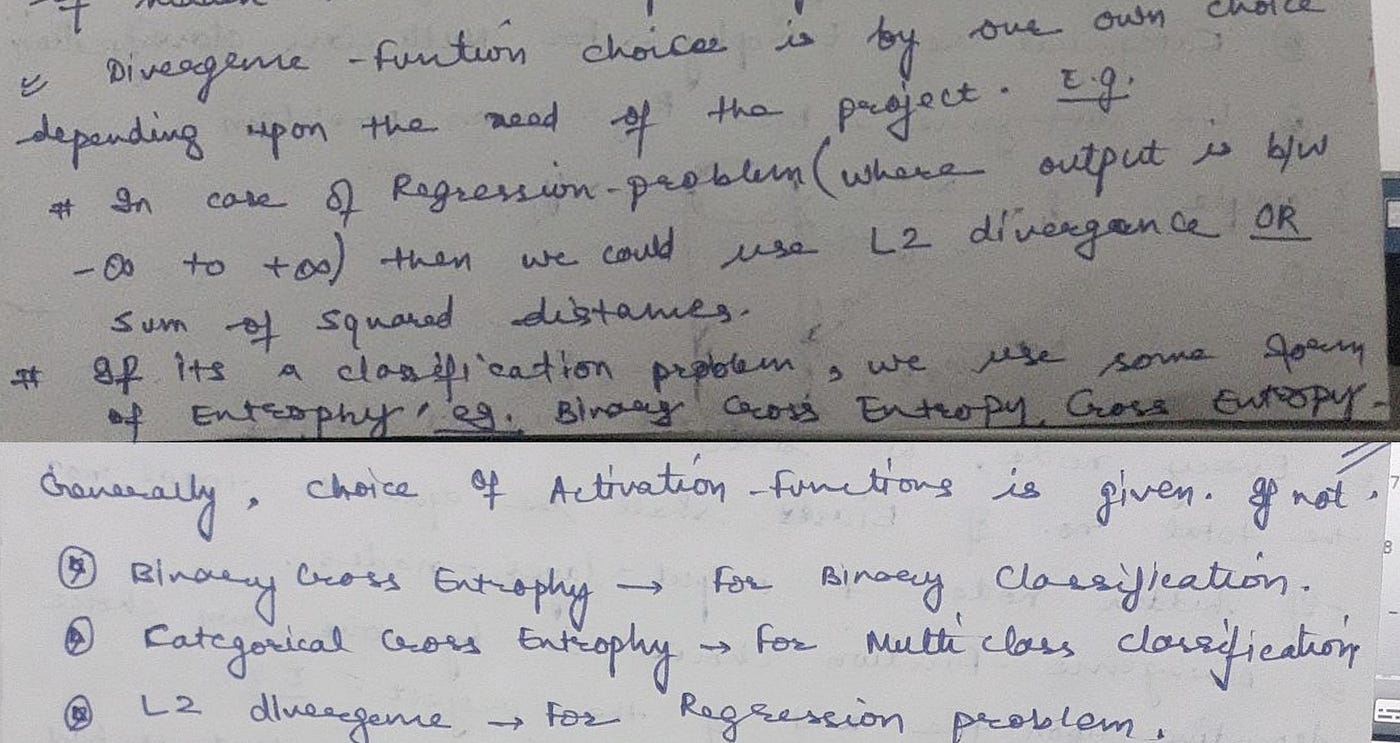 of hidden
Divergence - Funtion choices is by one own choice
depending upon the need of the project. E.g.
# In case of Regression-problem (where output is b/w
-∞ to +∞) then we could use L2 divergence OR
sum of squared distances.
# If its a classification problem, we use some form
of Entrophy, eg. Binary Cross Entropy, Cross Entropy.
Generally, choice of Activation-Functions is given. If not,
Binary Cross Entrophy → For Binary Classification.
Categorical Cross Entrophy → For Multi class classification
L2 divergence → For Regression problem.